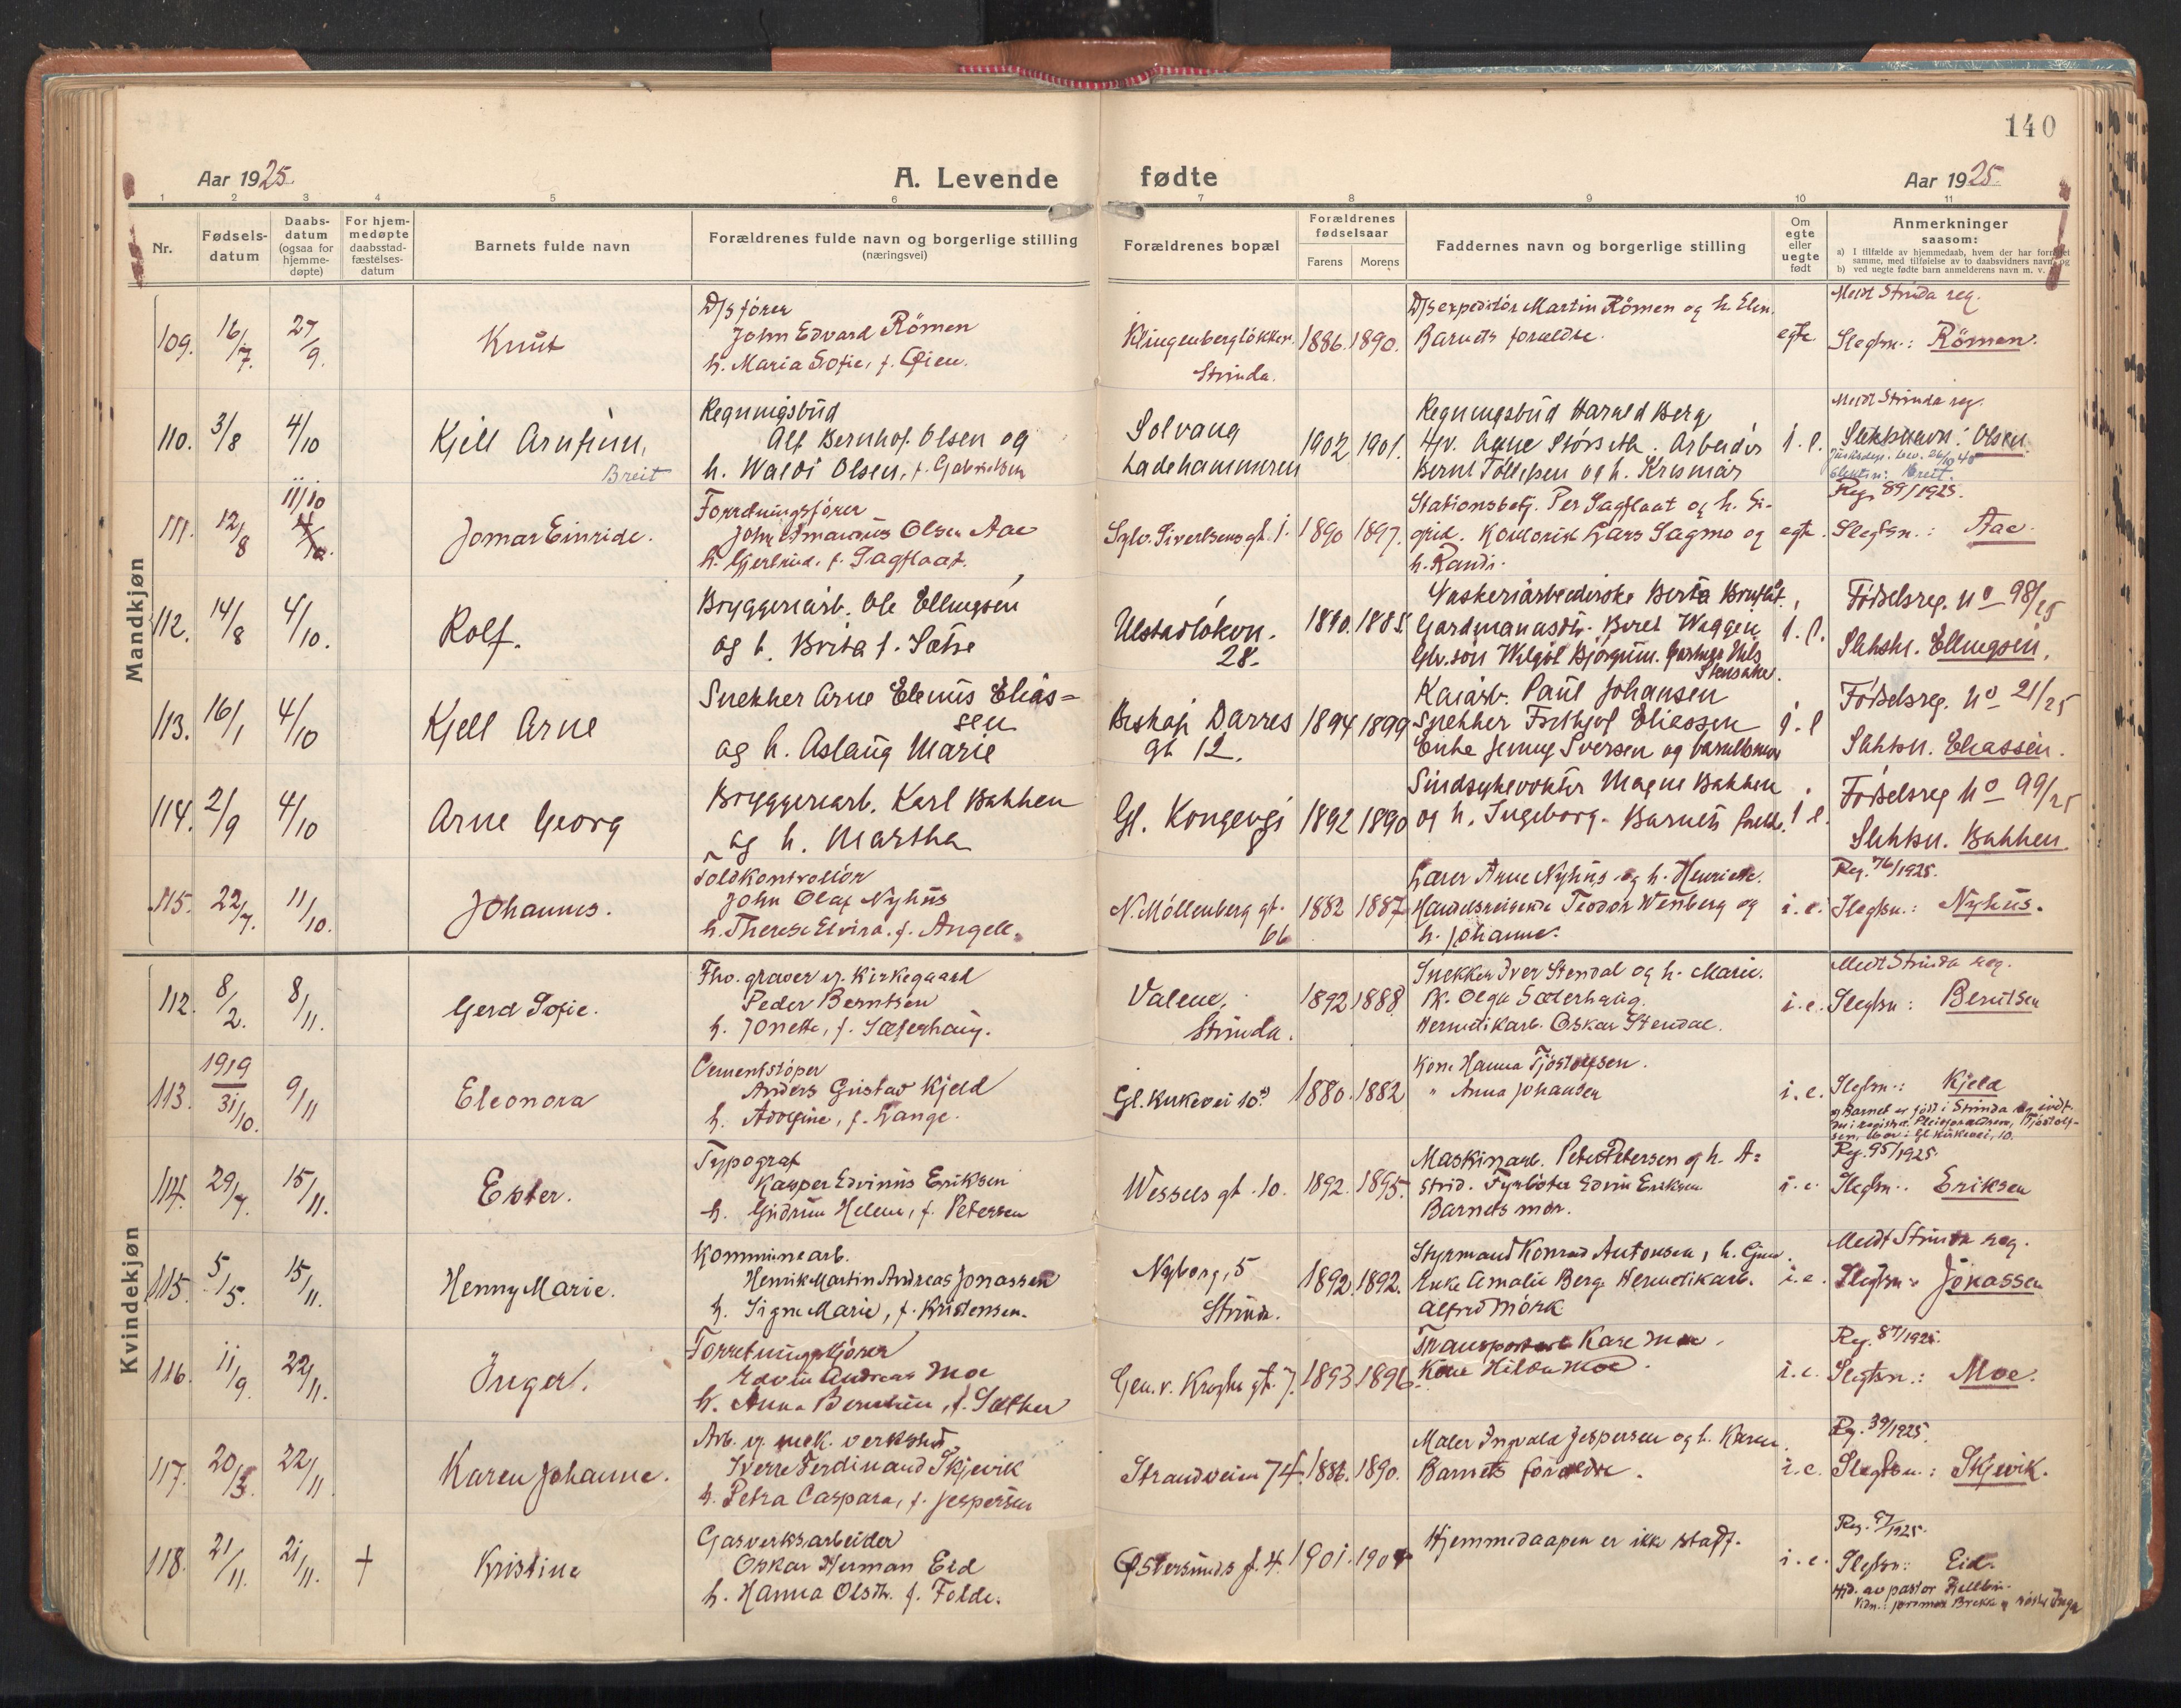 140
Aar 1925.
A. Levende fødte
Aar 1925.
1 2 3 4 5 6 7 8 9 10 11
Nr.
Fødsels-
datum
Daabs-
datum
(ogsaa for
hjemme-
døpte)
For hjem-
medøpte
daabsstad-
fæstelses-
datum
Barnets fulde navn
Forældrenes fulde navn og borgerlige stilling
(næringsvei)
Forældrenes bopæl
Forældrenes
fødselsaar
Farens Morens
Faddernes navn og borgerlige stilling
Om
egte
eller
uegte
født
Anmerkninger
saasom:
a) I tilfælde av hjemmedaab, hvem der har forrettet
samme, med tilføielse av to daabsvidners navn, og
b) ved uegte fødte barn anmelderens navn m. v.
Mandkjøn
109. 16/7. 27/9. Knut
D/S fører
John Edvard Römen
h. Maria Sofie, f. Øien.
Klingenbergløkken
Strinda.
1886. 1890.
D/S expeditör Martin Römen og h. Elen.
Barnets forældre.
egte.
Meldt Strinda reg.
Slegtsn.: Römen.
110. 3/8 4/10 Kjell Arnfinn,
Breit
Regningsbud
Alf Bernhof. Olsen og
h. Waldi Olsen, f. Gabrielsen
Solvang
Ladehammeren
1902 1901.
Regningsbud Harald Berg
Arbeider
Bernt Tollefsen og h.
Meldt Strinda reg.
Slektsnavn: Olsen.
Slektsn: Breit.
111. 12/8 11/10 Jomar Einride.
Forretningsfører
John Emarius Olsen Aae
h. Gjertrud. f. Sagflaat.
Sylv. Sivertsens gt. 1. 1890 1897.
Stationsbetj. Per Sagflaat og h. Si-
grid. Kontorist Lars Sagmo og
h. Randi.
egte.
Reg. 89/1925.
Slegtsn.: Aae.
112. 14/8 4/10. Rolf.
Bryggeriarb. Ole Ellingsen
og h. Brita f. Sætre
Ulstadløkken.
28.
1890. 1885.
Vaskeriarbeiderske Berta
Gardmannsdtr. Beret Waggen
Stensaker.
Fødselsreg. No 98/25
Slektsn. Ellingsen.
113. 16/1 4/10 Kjell Arne
Snekker Arne Elenus Elias=
sen
og h. Aslaug Marie
Biskop Darres
gt 12.
1894 1899
Kaiarb. Paul Johansen
Snekker Fridtjof Eliassen
Enke Jenny Iversen og barnets mor
Fødselsreg. No 21/25
Slektsn. Eliassen.
114. 2/9 4/10 Arne Georg
Bryggeriarb. Karl Bakken
og h. Martha
Gl. Kongevei 1892 1890
Sindsykevokter Magne Bakken
og h. Ingeborg. Barnets foreld.
Fødselsreg No 99/25
Slektsn. Bakken.
115. 22/7. 11/10. Johannes.
Toldkontrollör
John Olaf Nyhus
h. Therese Elvira. f. Angell.
N. Möllenberg gt.
66
1882 1887
Lærer Arne Nyhus og h. Henriette.
Handelsreisende Teodor Wenberg og
h. Johanne.
i. e.
Reg. 76/1925.
Slegtsn.: Nyhus.
Kvindekjøn
112. 8/2. 8/11. Gerd Sofie.
Fho. graver v. Kirkegaard
Peder Berntsen
h. Jonette, f. Sæterhaug.
Valene,
Strinda.
1892 1888
Snekker Iver Stendal og h. Marie.
Pk. Olga Sæterhaug.
Hermetikarb. Oskar Stendal.
i. e.
Meldt Strinda reg.
Slegtsn: Berntsen
113. 1919
31/10. 9/11 Eleonora
Cementstöper
Anders Gustav Kjeld
h. Adolfine, f. Lange.
Gl. Kirkevei 10. 1880. 1882
Kone Hanna Tjöstolfsen.
" Anna Johansen
i. e.
Slegtsn.: Kjeld
Barnet er født i Strinda og indf.
der i registret. Pleieforældrene, Tjöstolf-
sen, bor i Gl Kirkevei, 10.
114. 29/7. 15/11. Ester.
Typograf
Kasper Edvinus Eriksen
h. Gudrun Helene, f. Petersen
Wessels gt. 10. 1892. 1895.
Maskinarb. Peter Petersen og h. A=
strid. Fyrbøter Edvin Eriksen
Barnets mor.
i. e.
Reg. 95/1925
Slegtsn.: Eriksen
115. 5/5. 15/11. Henny Marie.
Kommunearb.
Henrik Martin Andreas Jonassen
h. Signe Marie, f. Kristensen.
Nyborg, 5
Strinda.
1892. 1892.
Styrmand Konrad Antonsen, h.
Enke Amalie Berg. Hermetikarb.
Alfred Mörk
i. e.
Meldt Strinda reg.
Slegtsn: Jonassen
116. 11/9. 22/11. Inger.
Forretningskjörer
Edvin Andreas Moe
h. Anna Berntine, f. Sæther
Gen. v. Kroghs gt. 7. 1893 1896
Transportarb Kare Moe.
Kone Hilda Moe.
i. e.
Reg. 87/1925.
Slegtsn.: Moe.
117. 20/3. 22/11 Karen Johanne.
Arb. v. mek. verksted
Sverre Ferdinand Skjevik
h. Petra Caspara, f. Jespersen
Strandveien 74. 1886. 1890.
Maler Ingvald Jespersen og h. Karen.
Barnets forældre.
i. e.
Reg. 39/1925.
Slegtsn.: Skjevik.
118. 21/11. 21/11. + Kristine
Gasverksarbeider
Oskar Herman Eid
h. Hanna Olsdtr. f. Folde.
Østersunds gt. 4. 1901. 1904
Hjemmedaapen er ikke stadf.
i. e.
Reg. 97/1925.
Slegtsn: Eid.
Hjd. av pastor
Vidn.: jordmor Brekke og søster Inga